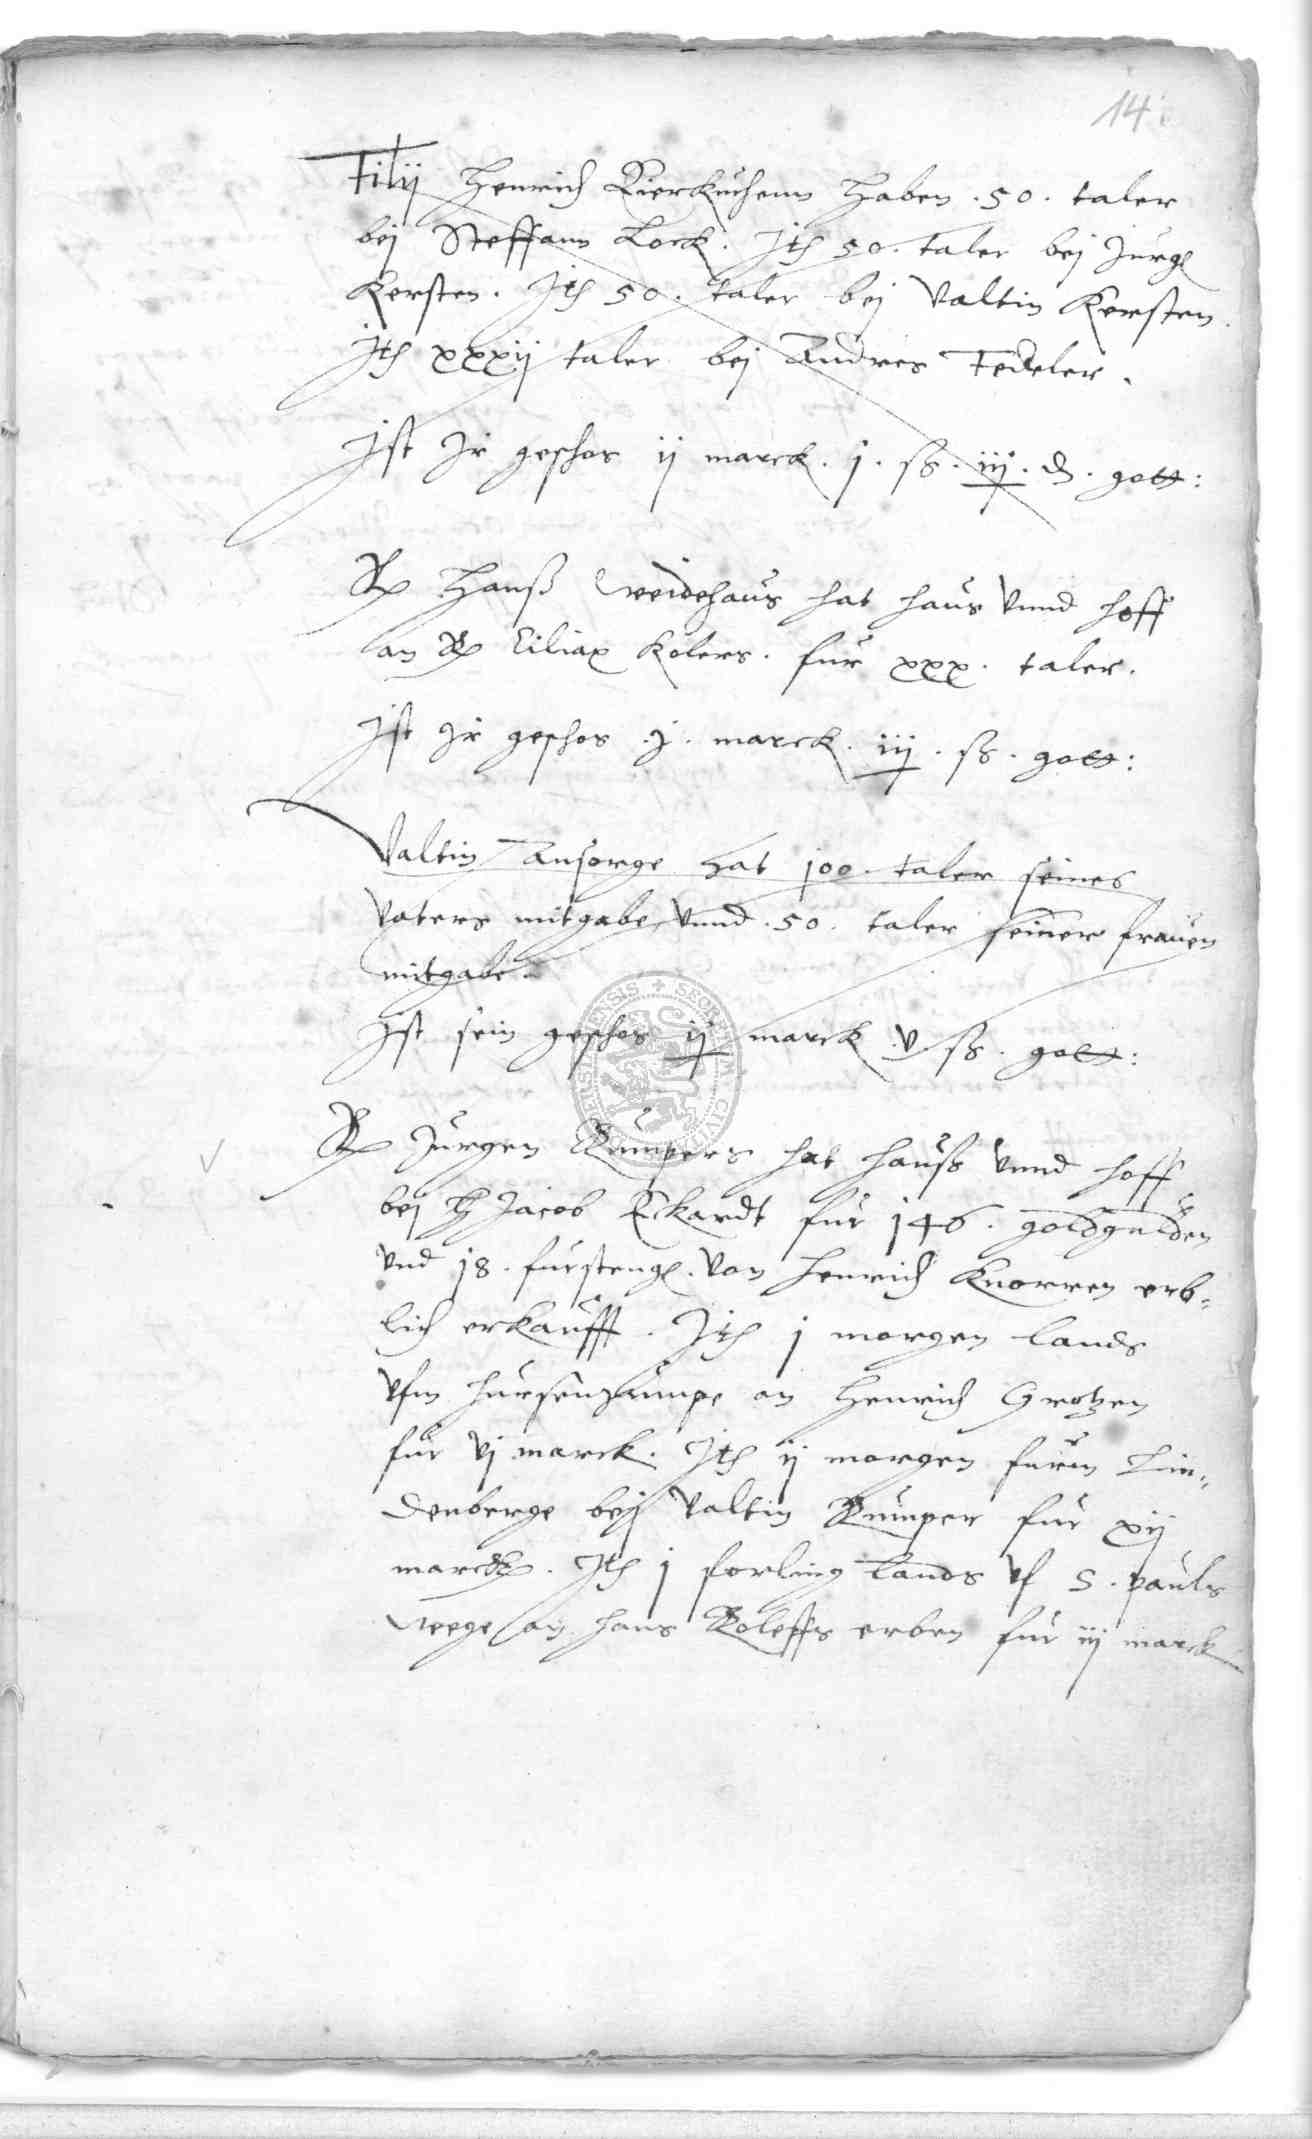 14
Filij Henrich Bierkuchenn haben . 50 . taler
bej Steffann Lock . Jtem 50 . taler bej Jurge
Kersten . Jtem 50 . taler bej Valtin Kersten .
Jtem xxxij taler bej Andres Fedeler .
Jst Jr geschos ij marck . j . ß . iij . d . gott :
Hanß Weidehaus hat haus vnnd hoff
an Ciliax Kolers . fur xxx . taler .
Jst Jr geschos . j . marck . iij . ß . gott :
Valtin Ansorge hat 100 . taler seines
Vaters mitgabe vnnd . 50 . taler seiner frauen
mitgabe .
Jst sein geschos ij marck . v . ß . gott :
Jurgen Kumpers hat hauß vnnd hoff
bej Jacob Eckardt fur 146 . goldgulden
vnd 18 . furstengr . von Henrich Knorren erb-
lich erkaufft . Jtem j morgen lands
vfm an Henrich Grotzen
fur vj marck . Jtem ij morgen furm Lin-
denberge beij Valtin Kumper fur xij
marck . Jtem j forling lands vf S . Pauls
wege an Hans Roleffs erben fur iij marck